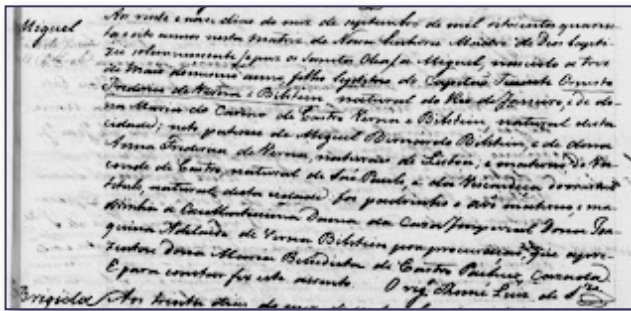 Miguel
Aos vinte e nove dias do mez de septembro de mil oitocentos quaren
ta e oito annos nesta matriz de Nossa Senhora Madre de Deos bapti
zei solemnemente e puz os Santos Oleos a Miguel, nascido a tres
de Maio do mesmo anno, filho legitimo do Capitão Tenente Ernesto
Frederico de Verna e Bilstein natural do Rio de Janeiro, e de do
na Maria do Carmo de Castro Verna e Bilstein, natural desta
cidade; neto paterno de Miguel Bernardo Bilstein, e de dona
Anna Frederica de Verna, naturaes de Lisboa; e materno do Vis
conde de Castro, natural de São Paulo, e da Viscondeça do mesmo
titulo, natural desta cidade foi padrinho o avô materno, e ma
drinha a Excellentissima Dama da Casa Imperial Dona Joa
quina Adelaide de Verna Bilstein por procuração, que
Dona Maria Benedicta de Castro
E para constar fiz este assento. O vigº Thomé Luiz de Sza
Brigida Aos trinta dias do mez de